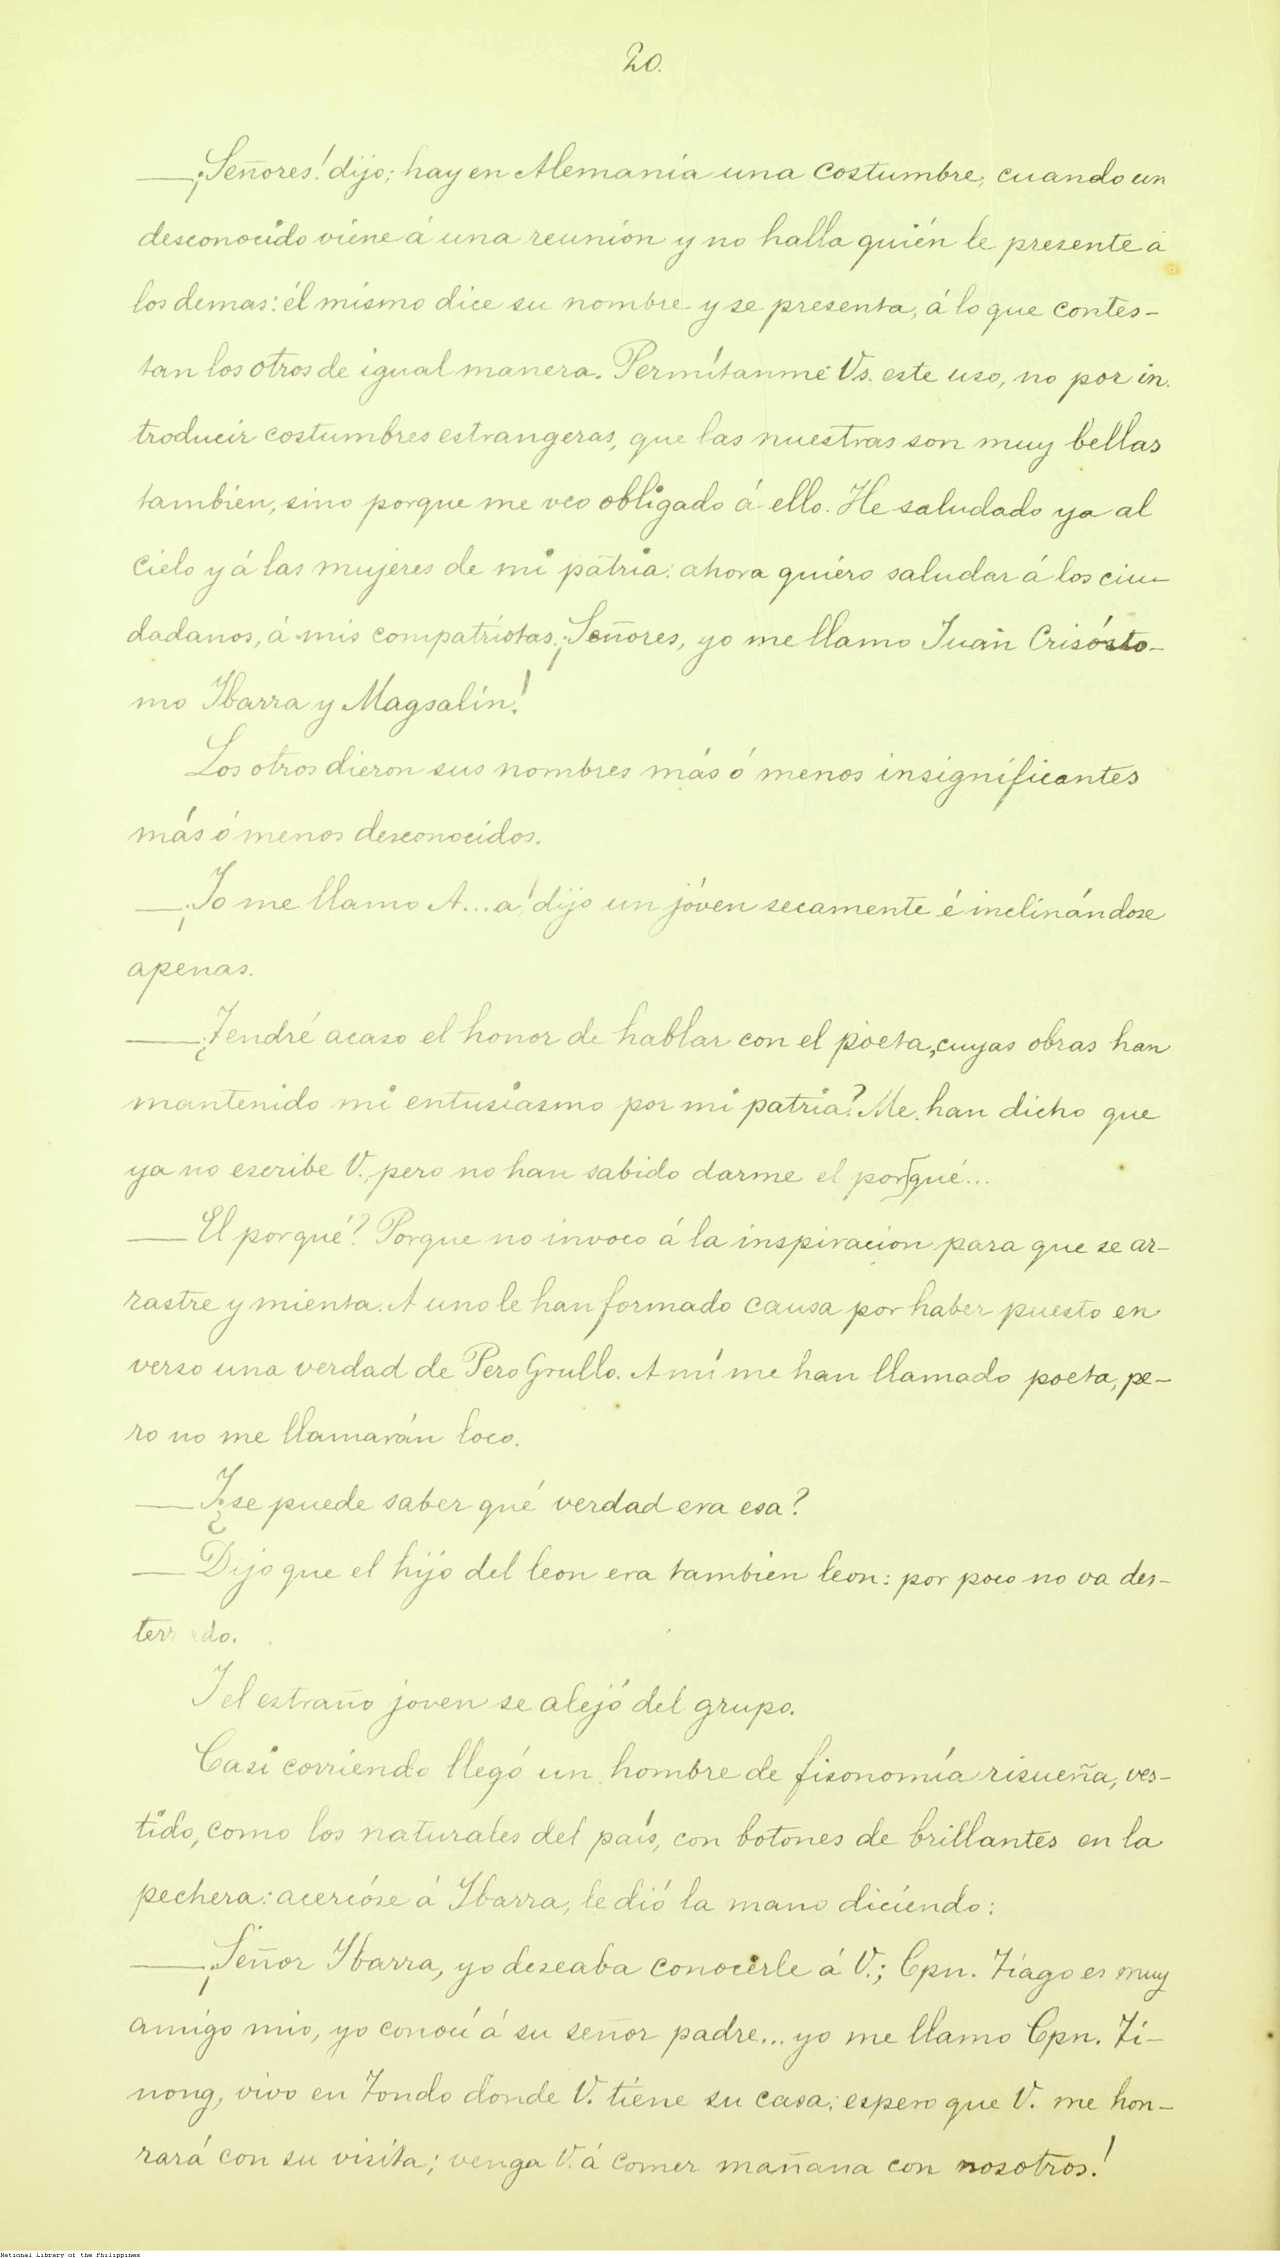 20.
—¡Señores! dijo; hay en Alemania una costumbre, cuando un
desconocido viene á una reunión y no halla quién le presente á
los demas: él mismo dice su nombre y se presenta, á lo que contes-
tan los otros de igual manera. Permítanme Vs. este uso, no por in-
troducir costumbres estrangeras, que las nuestras son muy bellas
tambien, sino porque me veo obligado á ello. He saludado ya al
cielo y á las mujeres de mi patria: ahora quiero saludar á los ciu-
dadanos, á mis compatriotas. ¡Señores, yo me llamo Juan Crisósto-
mo Ibarra y Magsalin!
Los otros dieron sus nombres más ó menos insignificantes
más ó menos desconocidos.
—¡Yo me llamo A...a! dijo un jóven secamente é inclinándose
apenas.
—¿Tendré acaso el honor de hablar con el poeta, cuyas obras han
mantenido mi entusiasmo por mi patria? Me han dicho que
ya no escribe V., pero no han sabido darme el porqué...
—El porqué? Porque no invoco á la inspiracion para que se ar-
rastre y mienta. A uno le han formado causa por haber puesto en
verso una verdad de Pero Grullo. A mí me han llamado poeta, pe-
ro no me llamarán loco.
—Y ¿se puede saber qué verdad era esa?
—Dijo que el hijo del leon era tambien leon: por poco no va des-
terrado.
Y el estraño joven se alejó del grupo.
Casi corriendo llegó un hombre de fisonomía risueña, ves-
tido, como los naturales del país, con botones de brillantes en la
pechera: acercóse á Ibarra, le dió la mano diciendo:
—¡Señor Ibarra, yo deseaba conocerle á V.; Cpn. Tiago es muy
amigo mio, yo conocí á su señor padre... yo me llamo Cpn. Ti-
nong, vivo en Tondo donde V. tiene su casa; espero que V. me hon-
rará con su visita; venga V. á comer mañana con nosotros!
National Library of the Philippines